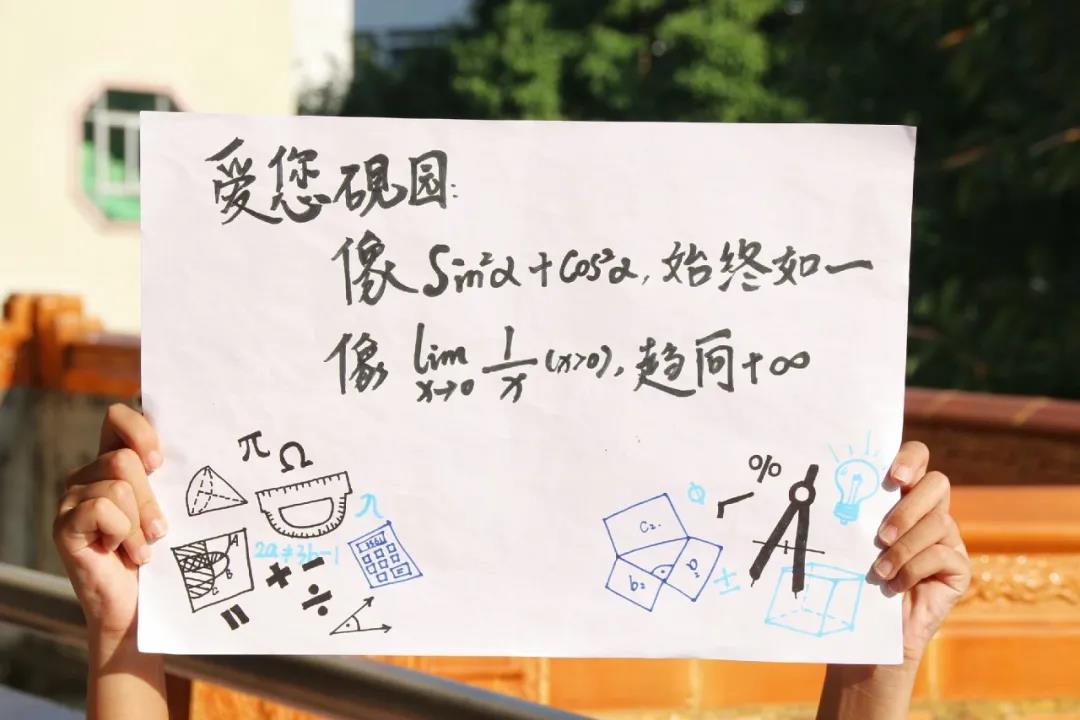 爱您砚园:
像 Sin²α + Cos²α, 始终如一
像 lim x→0 1/x (x>0), 趋向+∞
π
Ω
%
π
Φ
C2.
A
B
C
2a≠3b-1
b2
a2
±
+ -
÷
=